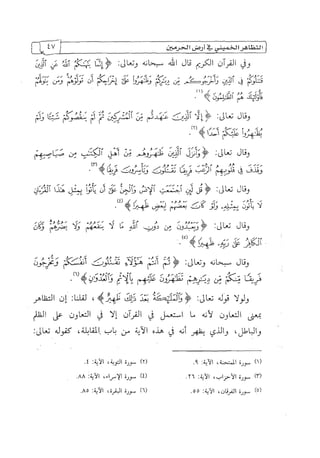 التظاهر الخميني في أرض الحرمين ٤٧
وفي القرآن الكريم قال الله سبحانه وتعالى: ﴿إنما ينهاكم الله عن الذين
قاتلوكم في الدين وأخرجوكم من دياركم وظاهروا على إخراجكم أن تولوهم ومن يتولهم
فأولئك هم الظالمون﴾(١).
وقال تعالى: ﴿إلا الذين عاهدتم من المشركين ثم لم ينقصوكم شيئا ولم
يظاهروا عليكم أحدا﴾(٢).
وقال تعالى: ﴿وأنزل الذين ظاهروهم من أهل الكتاب من صياصيهم
وقذف في قلوبهم الرعب فريقا تقتلون وتأسرون فريقا﴾(٣).
وقال تعالى: ﴿قل لئن اجتمعت الإنس والجن على أن يأتوا بمثل هذا القرآن
لا يأتون بمثله ولو كان بعضهم لبعض ظهيرا﴾(٤).
وقال تعالى: ﴿ويعبدون من دون الله ما لا ينفعهم ولا يضرهم وكان
الكافر على ربه ظهيرا﴾(٥).
وقال سبحانه وتعالى: ﴿ثم أنتم هؤلاء تقتلون أنفسكم وتخرجون
فريقا منكم من ديارهم تظاهرون عليهم بالإثم والعدوان﴾(٦).
ولولا قوله تعالى: ﴿والملائكة بعد ذلك ظهير﴾، لقلنا: إن التظاهر
بمعنى التعاون لأنه ما استعمل في القرآن إلا في التعاون على الظلم
والباطل، والذي يظهر أنه في هذه الآية من باب المقابلة، كقوله تعالى:
(١) سورة الممتحنة، الآية: ٩. (٢) سورة التوبة، الآية: ٤.
(٣) سورة الأحزاب، الآية: ٢٦. (٤) سورة الإسراء، الآية: ٨٨.
(٥) سورة الفرقان، الآية: ٥٥. (٦) سورة البقرة، الآية: ٨٥.